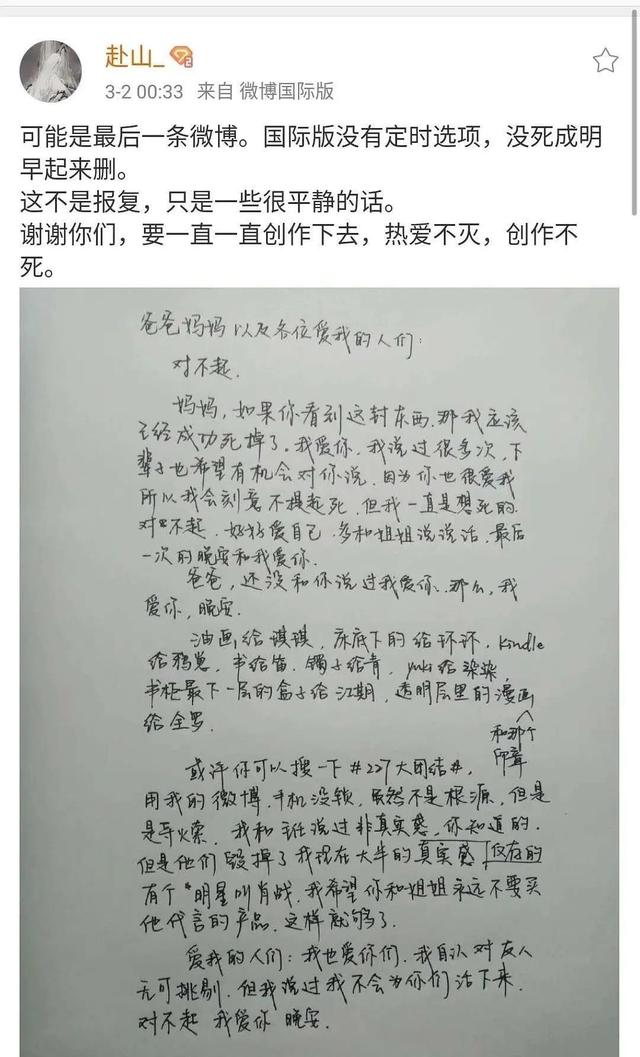 赴山_
3-2 00:33 来自 微博国际版
可能是最后一条微博。国际版没有定时选项，没死成明
早起来删。
这不是报复，只是一些很平静的话。
谢谢你们，要一直一直创作下去，热爱不灭，创作不
死。
爸爸妈妈以及各位爱我的人们：
对不起.
妈妈，如果你看到这封东西.那我应该
已经成功死掉了。我爱你，我说过很多次，下
辈子也希望有机会对你说，因为你也很爱我
所以我会刻意不提起死，但我一直是想死的.
对不起，好好爱自己，多和姐姐说说话，最后
一次的晚安和我爱你.
爸爸，还没和你说过我爱你.那么，我
爱你，晚安.
油画给琪琪，床底下的给环环，kindle
给鸦葱，书给笛，镯子给青，yuki给染染，
书柜最下一层的盒子给江期，透明层里的漫画
和那个
印章
给全罗.
或许你可以搜一下#227大团结#，
用我的微博，手机没锁，虽然不是根源，但是
是导火索，我和主任说过非真实感，你知道的，
但是他们毁掉了我现在大半的真实感，仅存的
有个"明星叫肖战，我希望你和姐姐永远不要买
他代言的产品，这样就够了.
爱我的人们：我也爱你们，我自认对友人
无可挑剔，但我说过我不会为你们活下来，
对不起 我爱你 晚安.